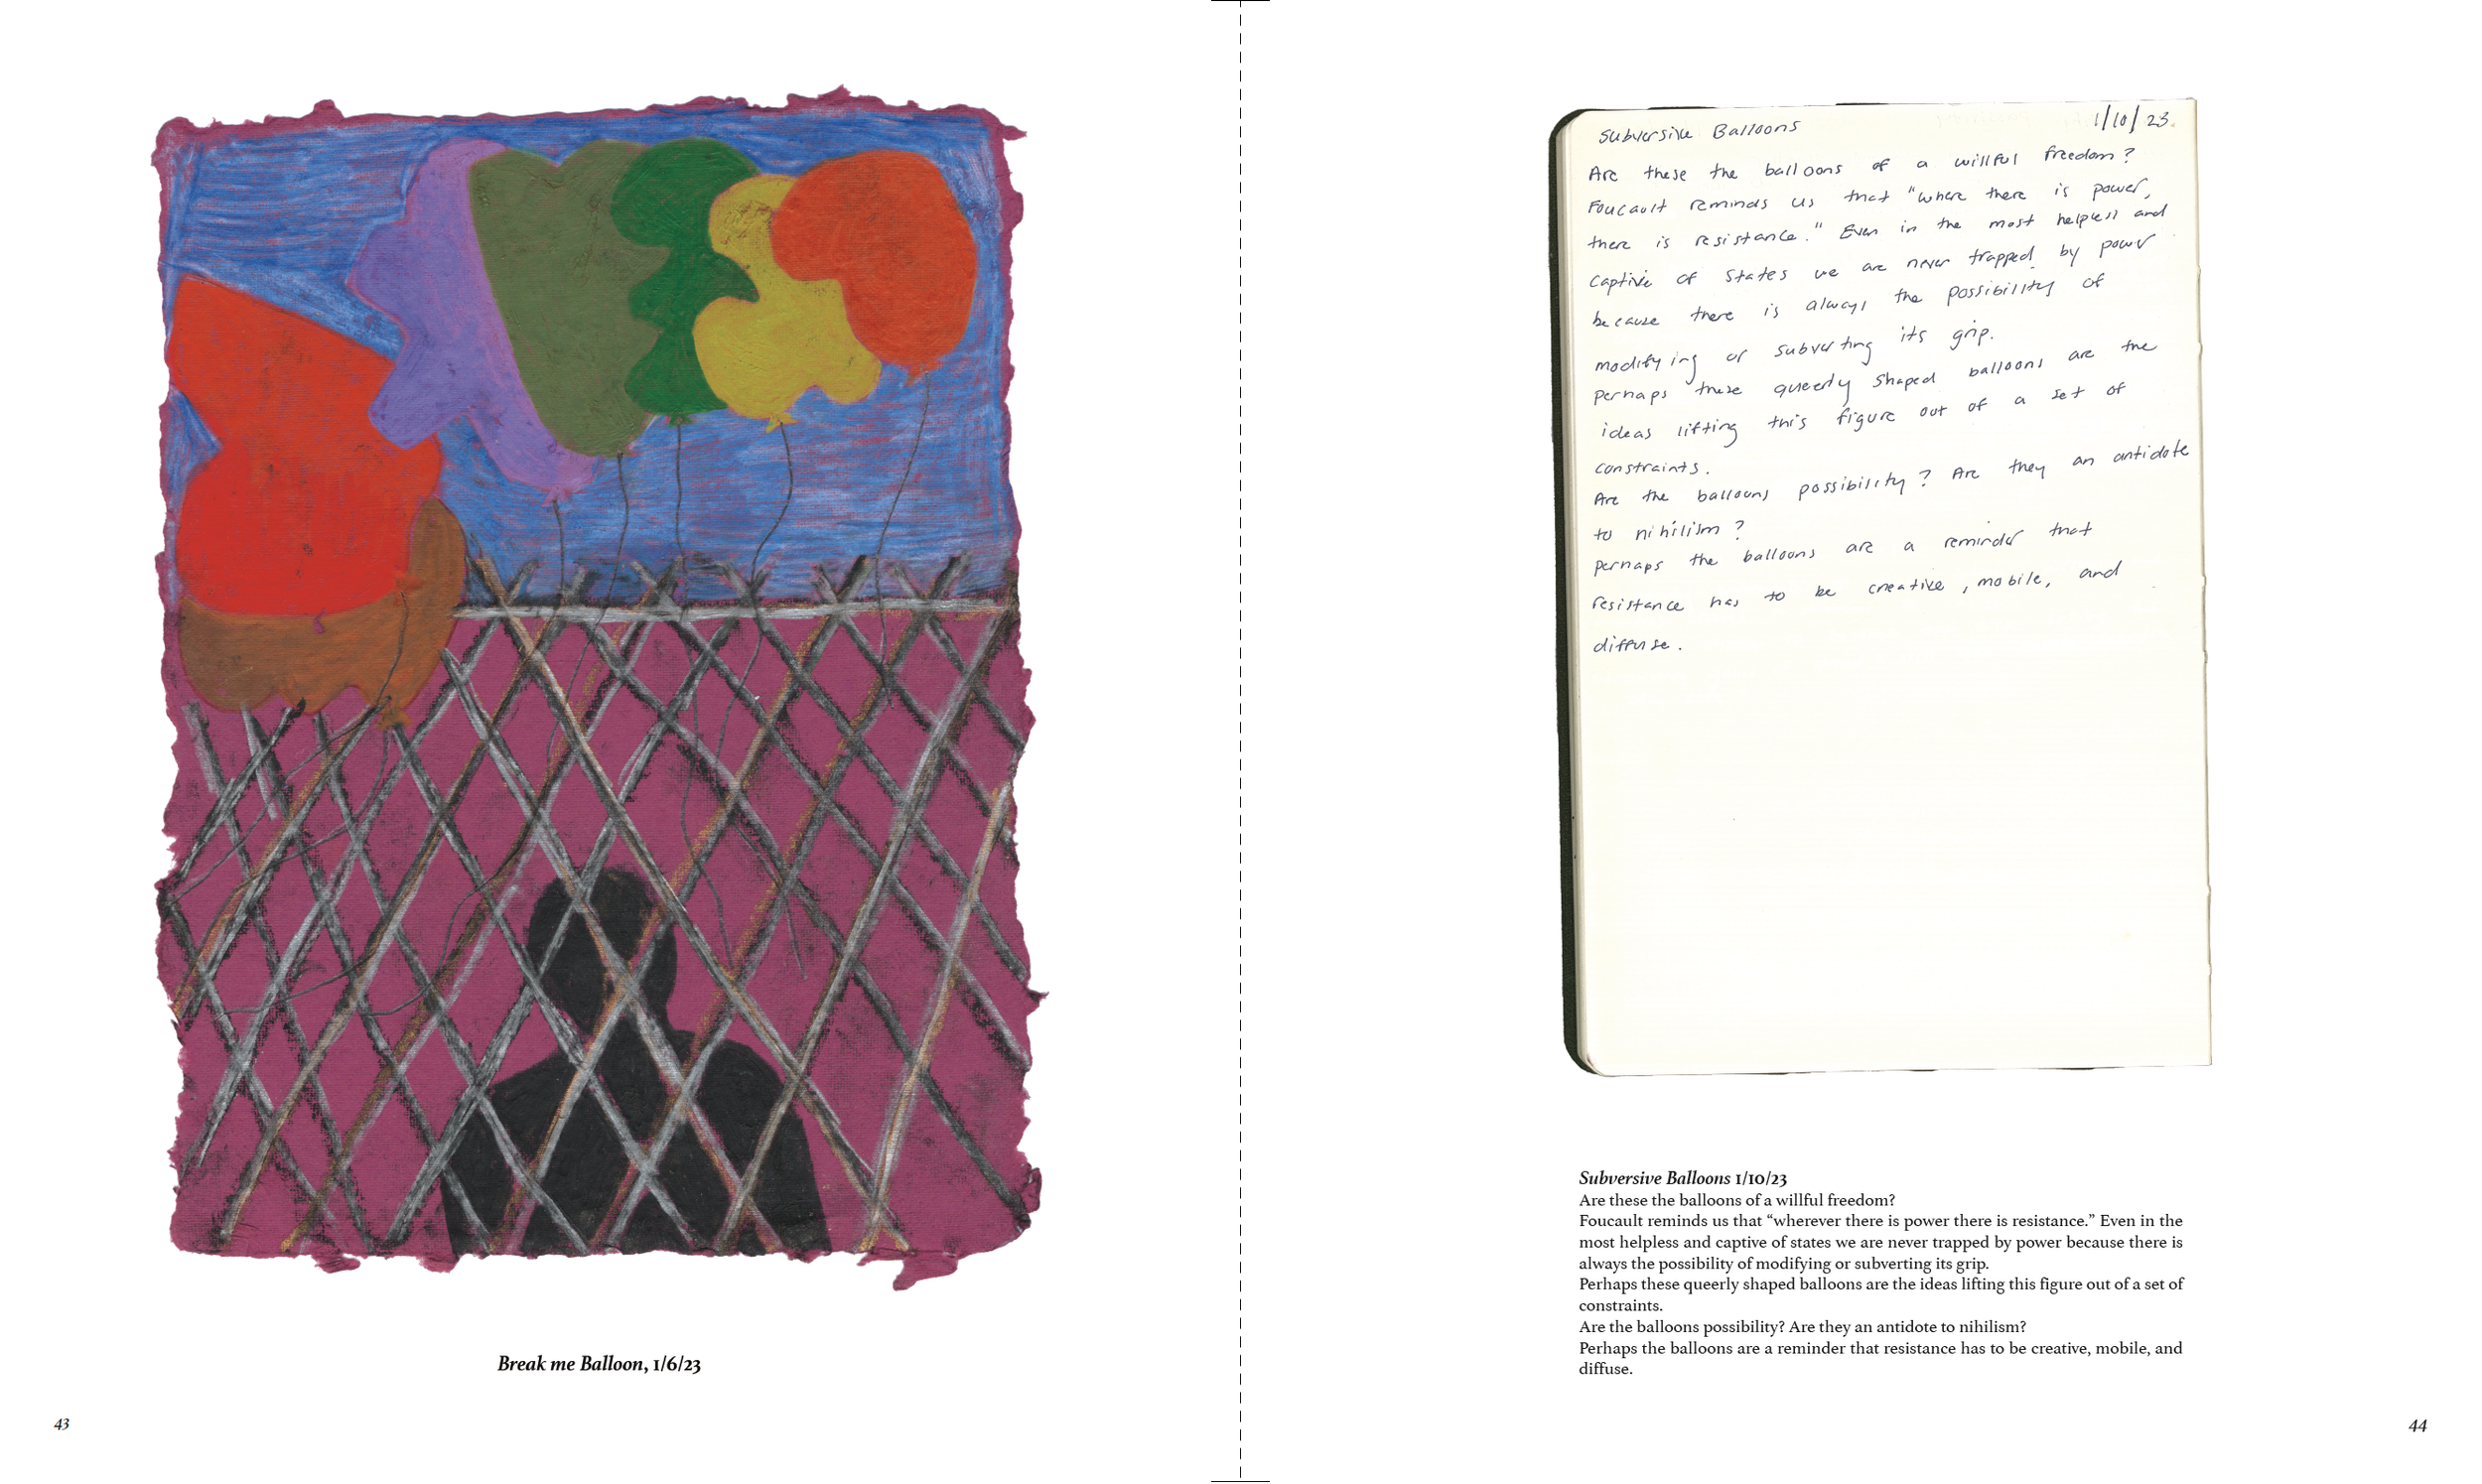 Break me Balloon, 1/6/23
43
Subversive Balloons 1/10/23
Are these the balloons of a willful freedom?
Foucault reminds us that "where there is power,
there is resistance." Even in the most helpless and
captive of states we are never trapped by power
because there is always the possibility of
modifying or subverting its grip.
Perhaps these queerly shaped balloons are the
ideas lifting this figure out of a set of
constraints.
Are the balloons possibility? Are they an antidote
to nihilism?
Perhaps the balloons are a reminder that
resistance has to be creative, mobile, and
diffuse.
Subversive Balloons 1/10/23
Are these the balloons of a willful freedom?
Foucault reminds us that “wherever there is power there is resistance.” Even in the
most helpless and captive of states we are never trapped by power because there is
always the possibility of modifying or subverting its grip.
Perhaps these queerly shaped balloons are the ideas lifting this figure out of a set of
constraints.
Are the balloons possibility? Are they an antidote to nihilism?
Perhaps the balloons are a reminder that resistance has to be creative, mobile, and
diffuse.
44